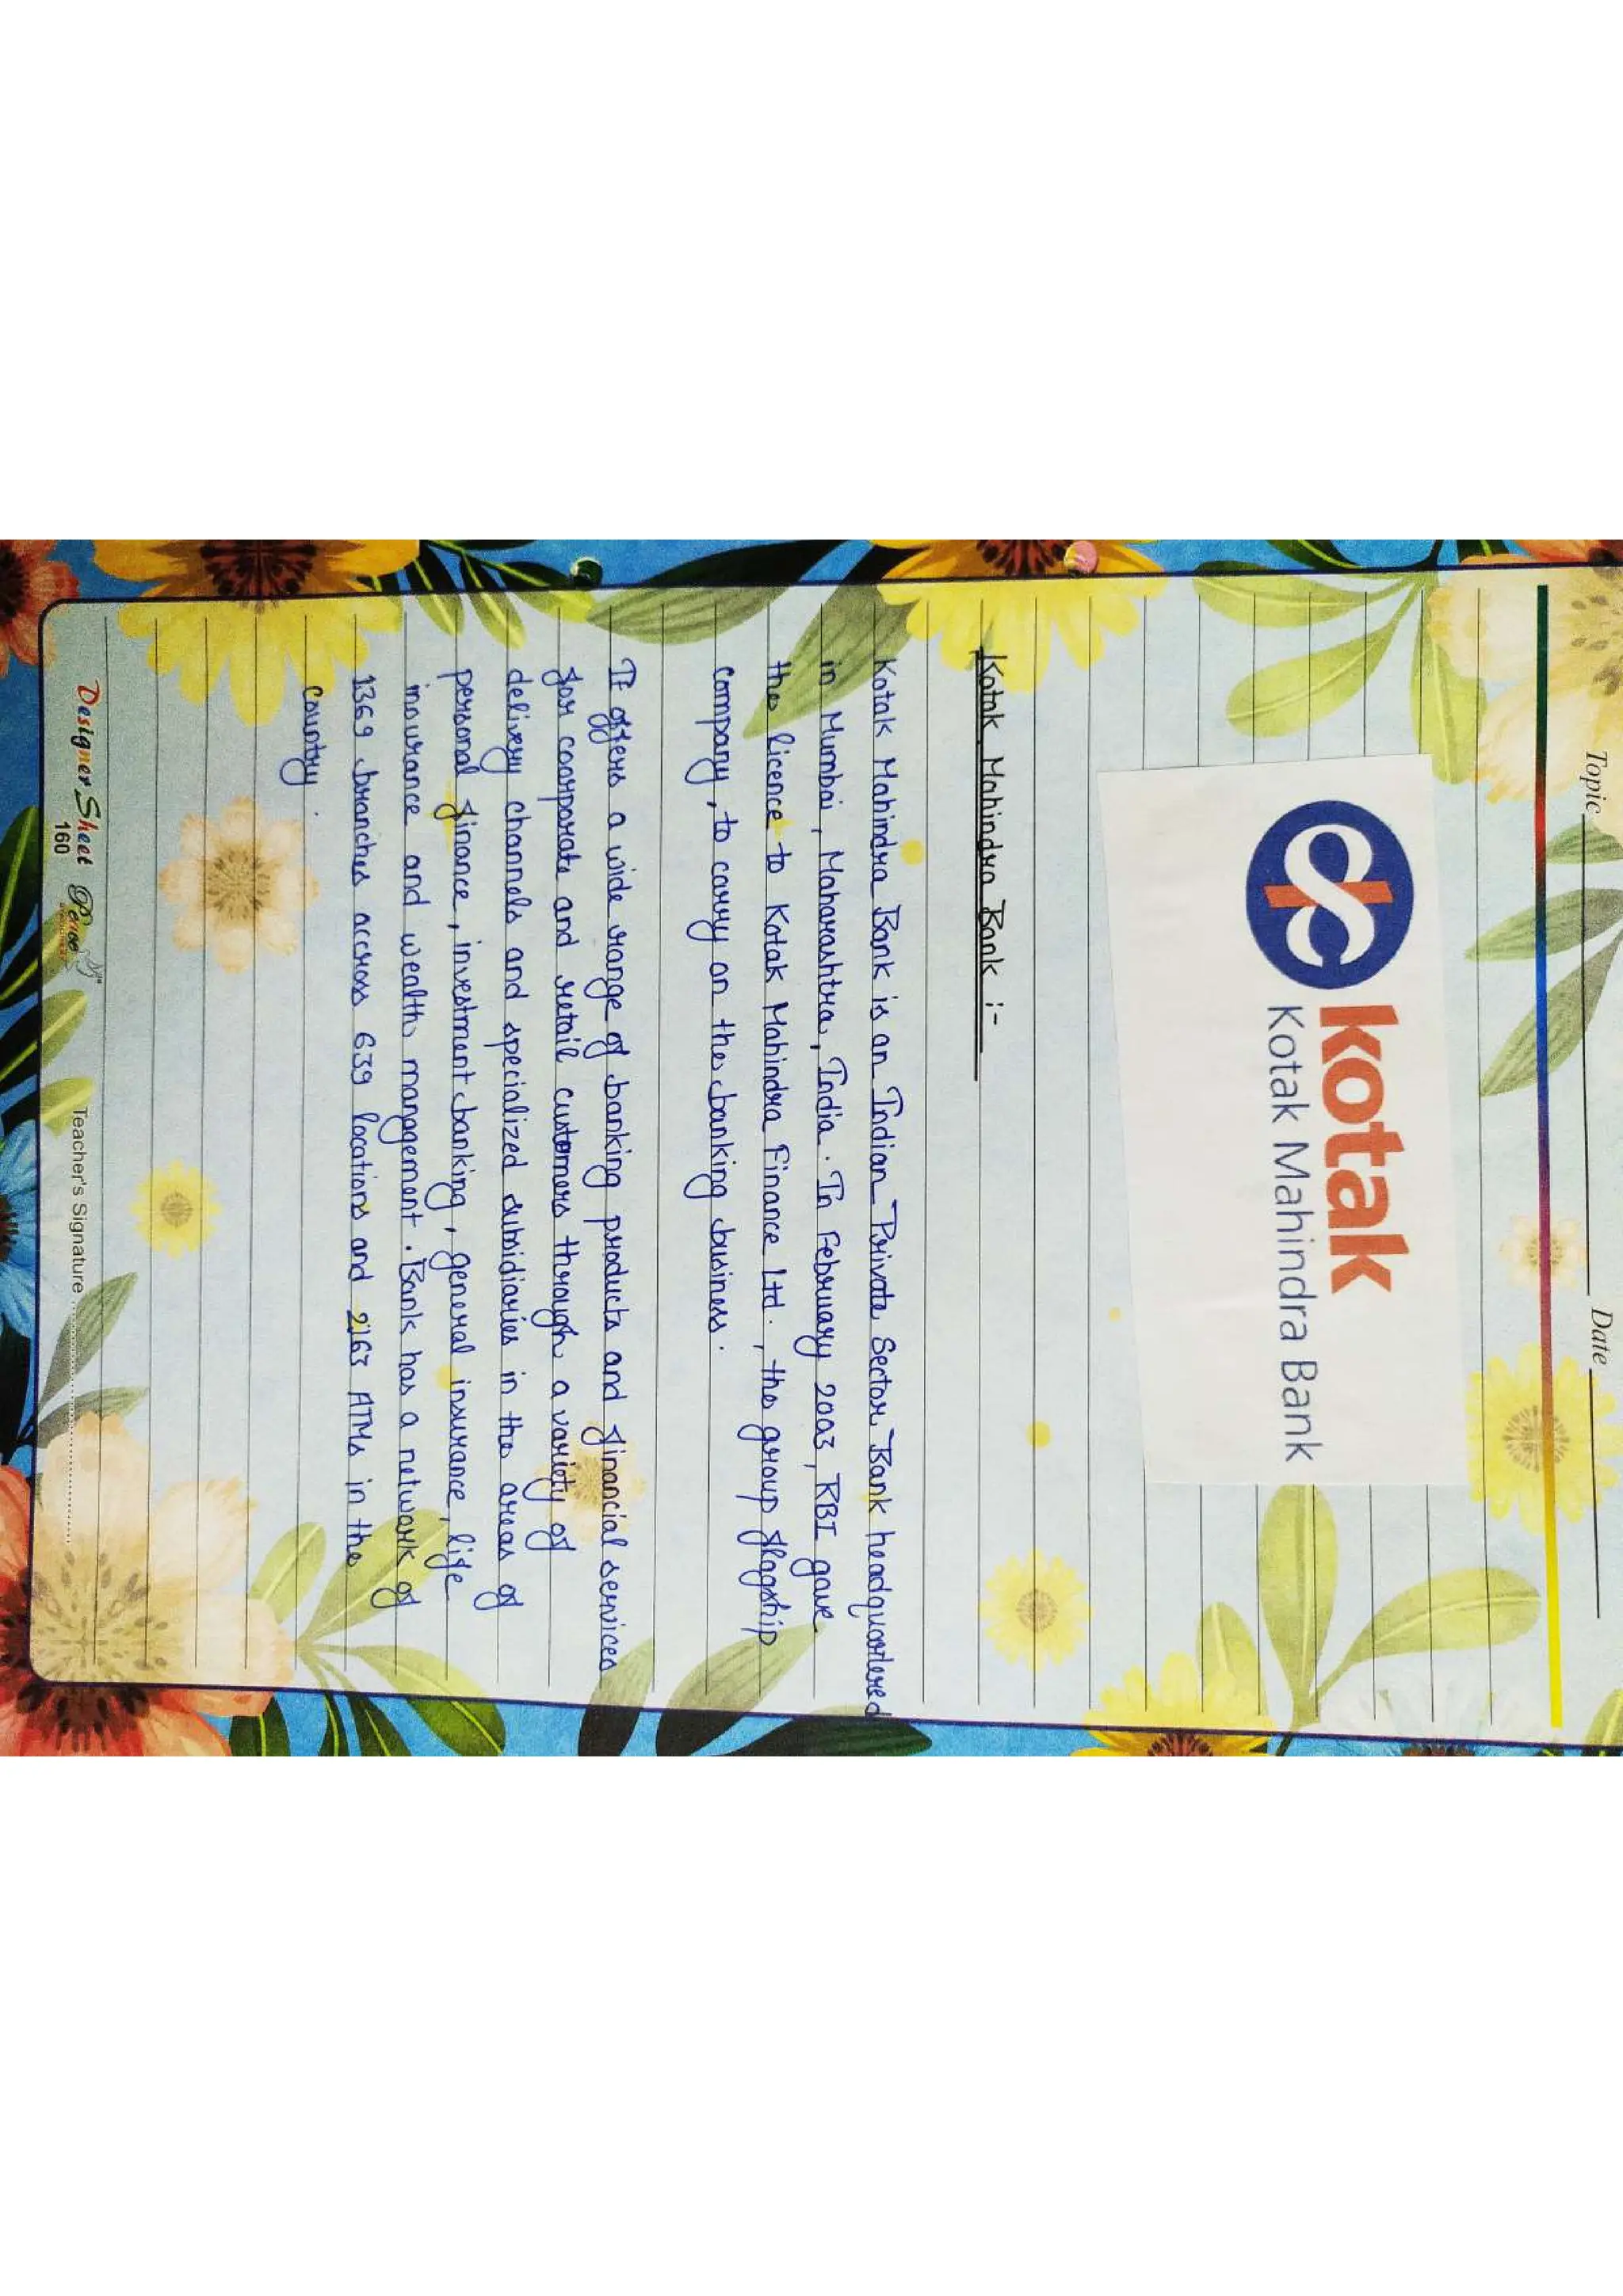 Topic Date
kotak
Kotak Mahindra Bank
Kotak Mahindra Bank :-
Kotak Mahindra Bank is an Indian Private Sector Bank headquartered
in Mumbai, Maharashtra, India. In February 2003, RBI gave
the licence to Kotak Mahindra Finance Ltd., the group flagship
company, to carry on the banking business.
It offers a wide range of banking products and financial services
for corporate and retail customers through a variety of
delivery channels and specialized subsidiaries in the areas of
personal finance, investment banking, general insurance, life
insurance and wealth management. Bank has a network of
1369 branches accross 639 locations and 2163 ATMs in the
country.
Designer Sheet Peace Teacher's Signature
160